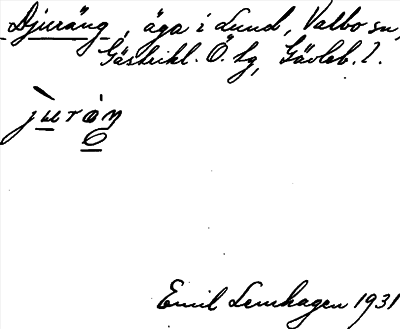 Djuräng, äga i Lund, Valbo sn,
Gästrikl. Ö. tg, Gävleb. l.
jùráŋ
o
Emil Lemhagen 1931